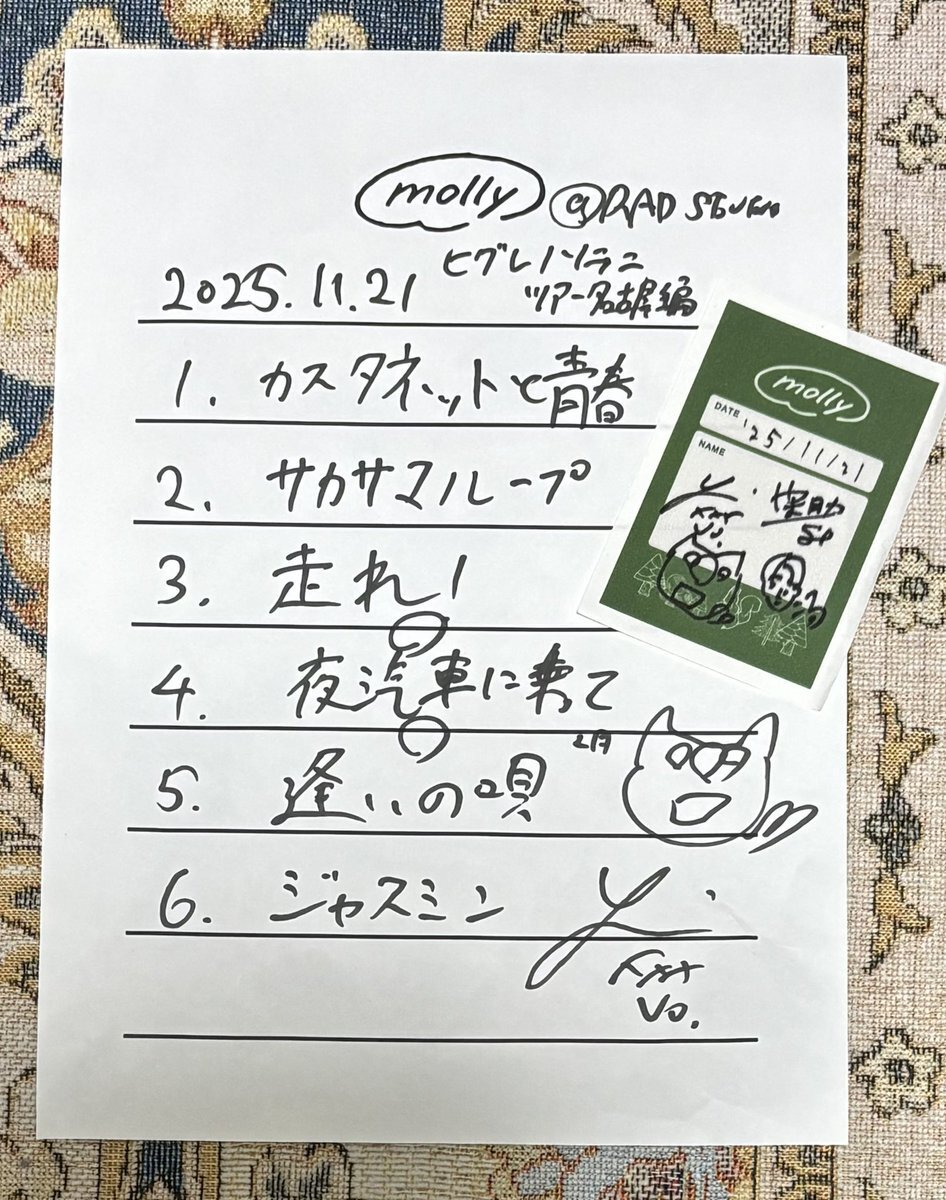 molly @RAD SEVEN
2025.11.21 ヒグレノソラニ
ツアー名古屋編
1. カスタネットと青春
2. サカサマループ
3. 走れ!
4. 夜汽車に乗って
5. 逢いの唄
6. ジャスミン
Vo.
molly
DATE
'25/11/21
NAME